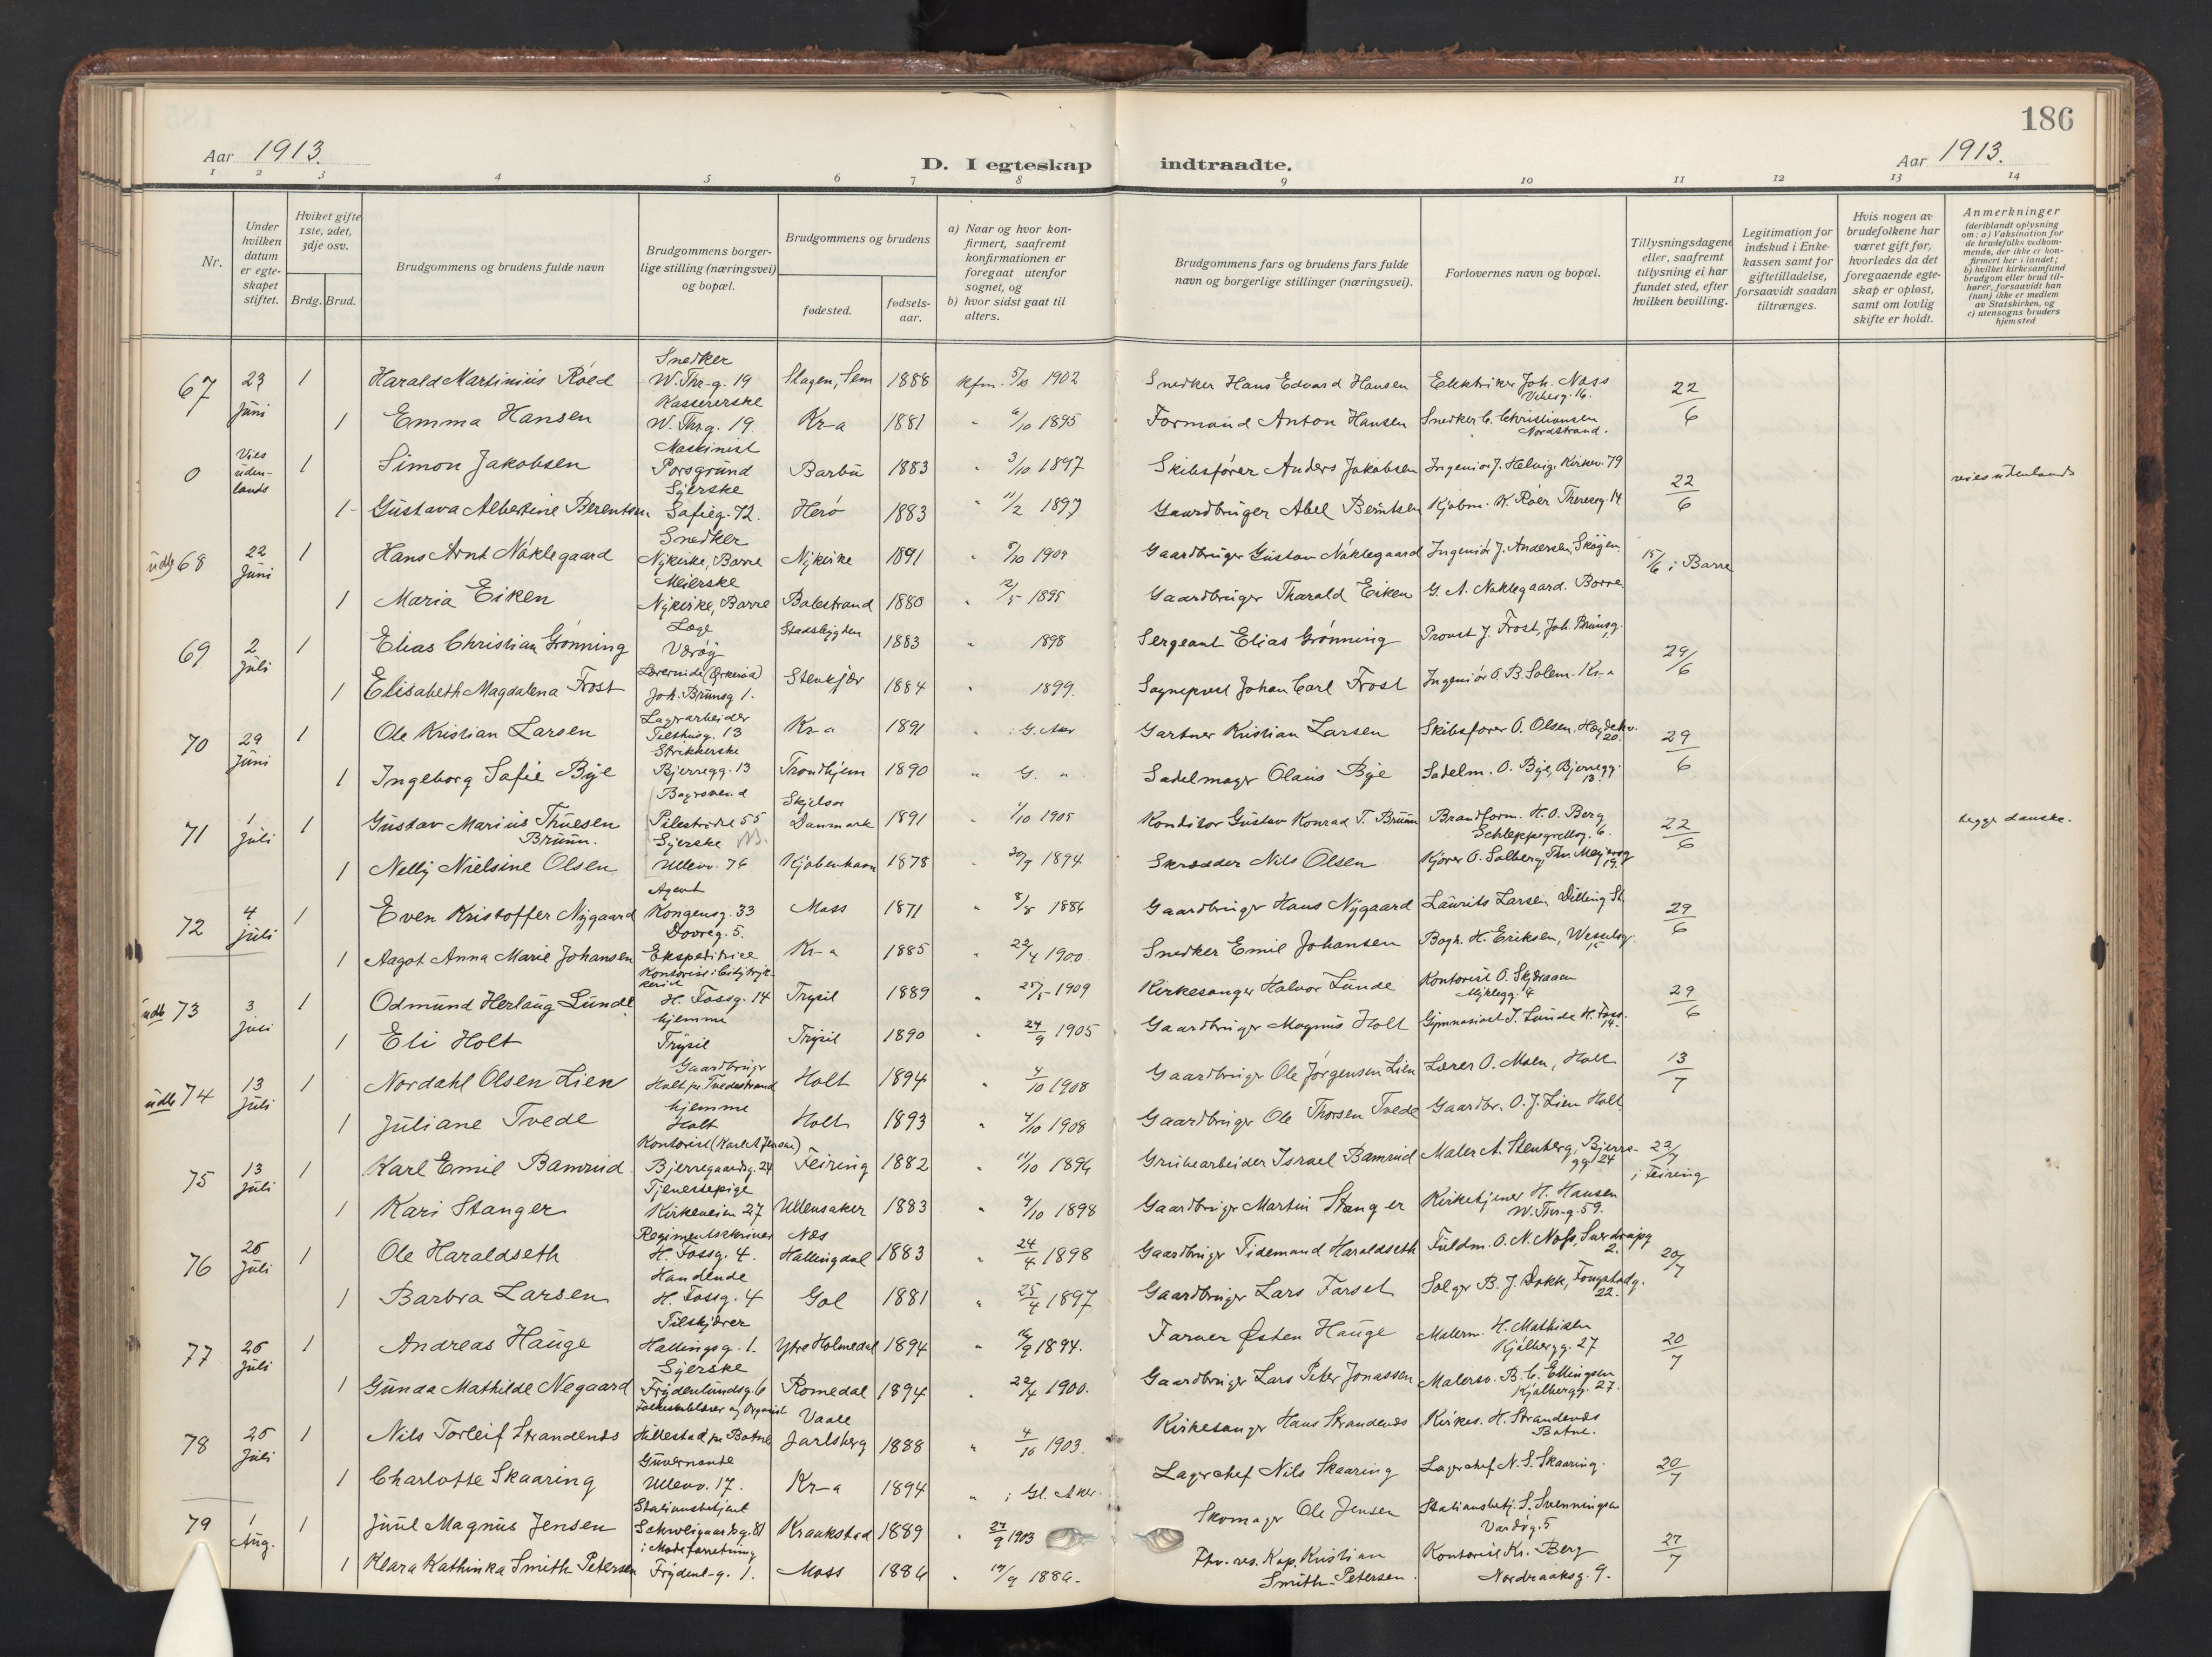 186
Aar 1913.
D. I egteskap indtraadte.
Aar 1913.
1 2 3 4 5 6 7 8 9 10 11 12 13 14
Nr.
Under hvilken datum er egteskapet stiftet.
Hviket gifte 1ste, 2det, 3dje osv.
Brdg. Brud.
Brudgommens og brudens fulde navn
Brudgommens borgerlige stilling (næringsvei) og bopæl.
Brudgommens og brudens
fødested.
fødselsaar.
a) Naar og hvor konfirmert, saafremt konfirmationen er foregaat utenfor sognet, og
b) hvor sidst gaat til alters.
Brudgommens fars og brudens fars fulde navn og borgerlige stillinger (næringsvei).
Forlovernes navn og bopæl.
Tillysningsdagene eller, saafremt tillysning ei har fundet sted, efter hvilken bevilling.
Legitimation for indskud i Enkekassen samt for giftetilladelse, forsaavidt saadan tiltrænges.
Hvis nogen av brudefolkene har været gift før, hvorledes da det foregaaende egteskap er opløst, samt om lovlig skifte er holdt.
Anmerkninger (deriblandt oplysning om: a) Vaksination for de brudefolks vedkommende, der ikke er konfirmert her i landet; b) hvilket kirkesamfund brudgom eller brud tilhører, forsaavidt han (hun) ikke er medlem av Statskirken, og c) utensogns bruders hjemsted
67 23 Juni 1 Harald Martinius Röed Snedker W. Thr-g. 19 Slagen, Sem 1888 kfm. 5/10 1902 Snedker Hans Edvard Hansen Elektriker Joh. Næss Vibesg. 16. 22/6
1 Emma Hansen Kassererske W. Thr.g. 19. Kr-a 1881 " 6/10 1895 Formand Anton Hansen Snedker C. Christiansen Nordstrand.
0 Vies udenlands 1 Simon Jakobsen Maskinist Porsgrund Barbu 1883 " 3/10 1897 Skibsfører Anders Jakobsen Ingeniør J. Helvig, Kirkev. 79 22/6 vies udenlands
1 Gustava Albertine Berentsen Syerske Sofieg. 72. Herö 1883 " 11/2 1897 Gaardbruger Abel Berntsen Kjøbm. K. Röer Theresesg. 14
udb 68 22 Juni 1 Hans Arnt Nöklegaard Snedker Nykirke, Borre Nykirke 1891 " 5/10 1907 Gaardbruger Gustav Nöklegaard Ingeniör J. Andersen, Skøyen. 15/6 i Borre
1 Maria Eiken Meierske Nykirke, Borre Balestrand 1880 " 12/5 1895 Gaardbruger Tharald Eiken G. A. Nøklegaard. Borre
69 2 Juli 1 Elias Christian Grønning Læge Værøy Stadsbygden 1883 " 1898 Sergeant Elias Grønning Provst J. Frost, Joh. Brunsg. 1. 29/6
1 Elisabeth Magdalena Frost Lærerinde Joh. Brunsg. 1. Stenkjær 1884 " 1899. Sognepræst Johan Carl Frost Ingeniör O. B. Solem. Kr-a
70 29 Juni 1 Ole Kristian Larsen Lagerarbeider Telthusg. 13 Kr-a 1891 i G. Aker Gartner Kristian Larsen Skibsfører O. Olsen, 20. 29/6
1 Ingeborg Sofie Bye Strikkerske Bjerregg. 13 Trondhjem 1890 " G. " Sadelmager Olaus Bye Sadelm. O. Bye, Bjerregg. 13.
71 1 Juli 1 Gustav Marius Thuesen Bruun. Bagersvend Pilestrædet 55 Skjelsør Danmark 1891 " 1/10 1905 Konditor Gustav Konrad T. Bruun Brandform. H. O. Berg Schleppegrellsg. 6. 22/6 begge danske.
1 Nelly Nielsine Olsen Syerske Ullevv. 76 Kjøbenhavn 1878 " 30/9 1894 Skrædder Nils Olsen Kjører O. Solberg, Thv. Meyersg 19.
72 4 Juli 1 Even Kristoffer Nygaard Agent Kongensg. 33 Moss 1871 " 8/8 1886 Gaardbruger Hans Nygaard Laurits Larsen, Dilling St. 29/6
1 Aagot Anna Marie Johansen Dovreg. 5. Ekspeditrice Kr-a 1885 " 22/4 1900 Snedker Emil Johansen Bogh. H. Eriksen, Wesselsg. 15
udb 73 3 juli 1 Odmund Herlaug Lunde Kontorist H. Fossg. 14 Trysil 1889 " 25/5 1909 Kirkesanger Halvor Lunde Kontorist O. Skjæraaen Myklegg. 4 29/6
1 Eli Holt hjemme Trysil Trysil 1890 " 24/9 1905 Gaardbruger Magnus Holt Gymnasiast T. Lunde H. Foss. 14.
udb 74 13 Juli 1 Nordahl Olsen Lien Gaardbruger Holt pr. Tvedestrand Holt 1894 " 4/10 1908 Gaardbruger Ole Jörgensen Lien Lærer O. Moen, Holt 13/7
1 Juliane Tvede hjemme Holt Holt 1893 " 4/10 1908 Gaardbruger Ole Thorsen Tvede Gaardbr. O. J. Lien Holt
75 13 Juli 1 Karl Emil Bamrud Kontorist (Karl A Jensen) Bjerregaardsg. 24 Feiring 1882 " 11/10 1896 Grubearbeider Israel Bamrud Maler A. Stenberg, Bjerregg. 24 22/7 i Feiring
1 Kari Stanger Tjenestepige Kirkeveien 27 Ullensaker 1883 " 9/10 1898 Gaardbruger Martin Stanger Kirketjener H. Hansen W. Thr-g. 59.
76 26 Juli 1 Ole Haraldseth Regimentsskriver H. Fossg. 4. Næs Hallingdal 1883 " 24/4 1898 Gaardbruger Tidemand Haraldseth Fuldm. O. N. Næss, Sverdrupsg 2. 20/7
1 Barbra Larsen Handlende H. Fossg. 4 Gol 1881 " 25/4 1897 Gaardbruger Lars Farset Selger B. J. Dokk, Fougstadg. 22.
77 26 Juli 1 Andreas Hauge Tilskjærer Hallingsg. 1. Ytre Holmedal 1894 " 1894. Farver Østen Hauge Malerm. H. Mathisen Kjølbergg. 27 20/7
1 Gunda Mathilde Negaard Syerske Frydenlundsg. 6 Romedal 1894 " 22/4 1900. Gaardbruger Lars Peter Jonassen Malersv. B. C. Ellingsen Kjølbergg. 27.
78 26 Juli 1 Nils Torleif Strandends Folkeskolelærer og Organist Hillestad pr. Botne Vaale Jarlsberg 1888 " 4/10 1903. Kirkesanger Hans Strandends Kirkes. H. Strandends Botne. 20/7
1 Charlotte Skaaring Guvernante Ullevv. 17. Kr-a 1894 " i Gl. Aker Lagerchef Nils Skaaring Lagerchef N. S. Skaaring.
79 1 Aug. 1 Juul Magnus Jensen Stationsbetjent Schweigaardsg. 81 Kraakstad 1889 " 27/9 1903 Skomager Ole Jensen Stationsbetj. S. Svenningsen Vardøg. 5 27/7
1 Klara Kathinka Smith Petersen i Modeforretning Frydenl-g. 1. Moss 1886 " 19/9 1886. Fhv. res. Kap. Kristian Smith-Petersen. Kontorist Kr. Berg Nordraaksg. 9.